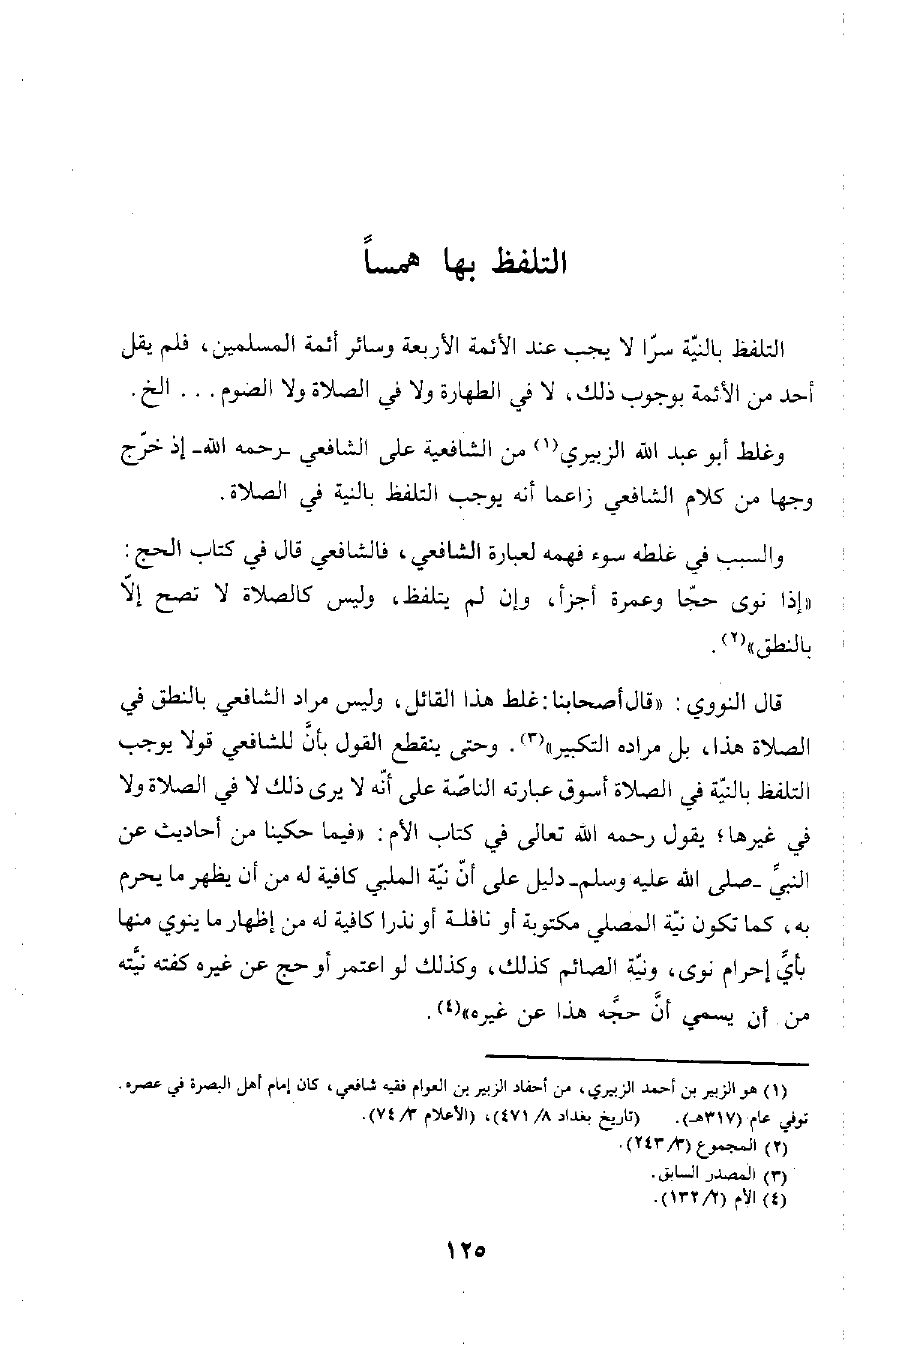 التلفظ بها همساً
التلفظ بالنيّة سرّا لا يجب عند الأئمة الأربعة وسائر أئمة المسلمين، فلم يقل
أحد من الأئمة بوجوب ذلك، لا في الطهارة ولا في الصلاة ولا الصوم . . . الخ.
وغلط أبو عبد الله الزبيري(١) من الشافعية على الشافعي -رحمه الله- إذ خرّج
وجها من كلام الشافعي زاعما أنه يوجب التلفظ بالنية في الصلاة.
والسبب في غلطه سوء فهمه لعبارة الشافعي، فالشافعي قال في كتاب الحج:
«إذا نوى حجّا وعمرة أجزأ، وإن لم يتلفظ، وليس كالصلاة لا تصح إلّا
بالنطق»(٢).
قال النووي: «قال أصحابنا: غلط هذا القائل، وليس مراد الشافعي بالنطق في
الصلاة هذا، بل مراده التكبير»(٣). وحتى ينقطع القول بأنَّ للشافعي قولا يوجب
التلفظ بالنيّة في الصلاة أسوق عبارته الناصّة على أنّه لا يرى ذلك لا في الصلاة ولا
في غيرها؛ يقول رحمه الله تعالى في كتاب الأم: «فيما حكينا من أحاديث عن
النبيِّ -صلى الله عليه وسلم- دليل على أنّ نيّة الملبي كافية له من أن يظهر ما يحرم
به، كما تكون نيّة المصلي مكتوبة أو نافلة أو نذرا كافية له من إظهار ما ينوي منها
بأيِّ إحرام نوى، ونيّة الصائم كذلك، وكذلك لو اعتمر أو حج عن غيره كفته نيَّته
من أن يسمي أنَّ حجَّه هذا عن غيره»(٤).
(١) هو الزبير بن أحمد الزبيري، من أحفاد الزبير بن العوام فقيه شافعي، كان إمام أهل البصرة في عصره.
توفي عام (٣١٧هـ). (تاريخ بغداد ٨/ ٤٧١)، (الأعلام ٣/ ٧٤).
(٢) المجموع (٣/ ٢٤٣).
(٣) المصدر السابق.
(٤) الأم (٢/ ١٣٢).
١٢٥